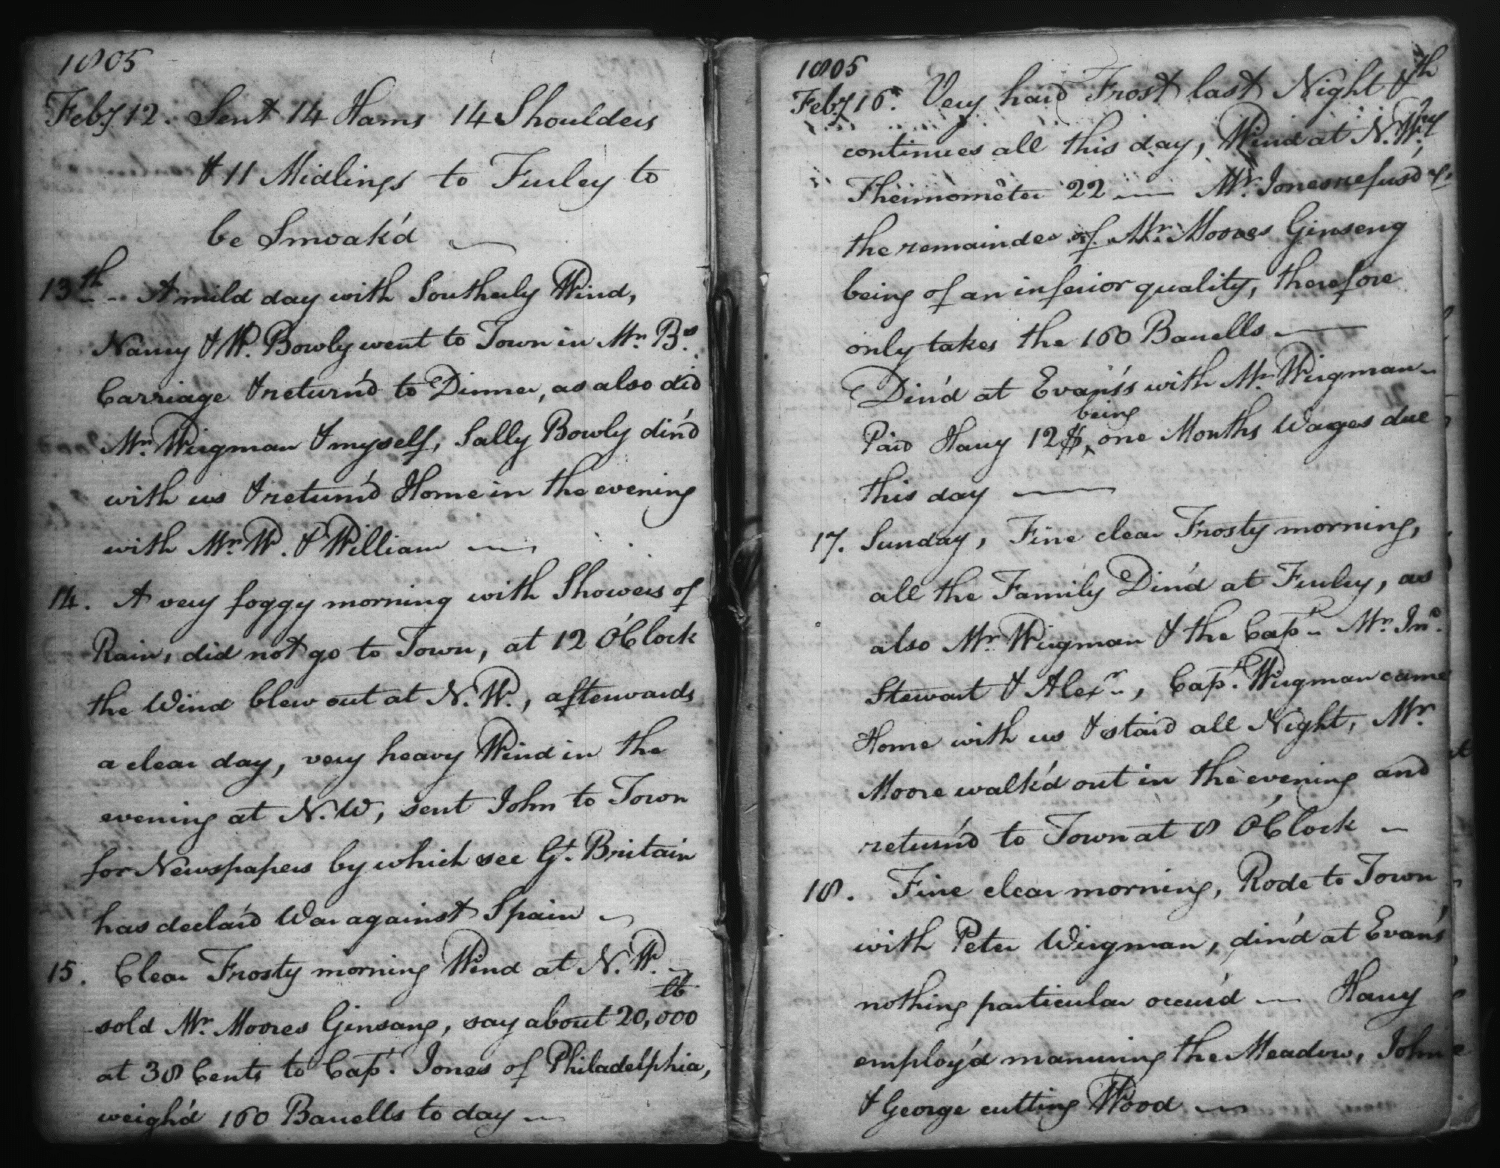 1805
Feby 12. Sent 14 Hams 14 Shoulders
& 11 Midlings to Furley to
be Smoak'd
13th - A mild day with Southerly Wind,
Nancy & W. Bowly went to Town in Mr. B.s
Carriage & return'd to Dinner, as also did
Mr. Wirgman & myself, Sally Bowly din'd
with us & return'd Home in the evening
with Mr. W. & William
14. A very foggy morning with Showers of
Rain, did not go to Town, at 12 O'Clock
the Wind blew out at N.W., afterwards
a clear day, very heavy Wind in the
evening at N.W, sent John to Town
for Newspapers by which see Gt. Britain
has declar'd War against Spain
15. Clear Frosty morning Wind at N.W.
sold Mr. Moores Ginsang, say about 20,000 lb
at 38 Cents to Capt. Jones of Philadelphia,
weigh'd 160 Barrells to day
1805
Feby 16. Very hard Frost last Night & th
continues all this day, Wind at N.W.
Thermometer 22 Mr. Jones refus'd
the remainder of Mr. Moores Ginseng
being of an inferior quality, therefore
only takes the 160 Barrells
Din'd at Evans's with Mr Wirgman
Paid Harry 12$, being one Months Wages due
this day
17. Sunday, Fine clear Frosty morning,
all the Family Din'd at Furley, as
also Mr. Wirgman & the Capt. Mr. Jno.
Stewart & Alexr., Capt. Wirgman came
Home with us & staid all Night, Mr.
Moore walk'd out in the evening and
return'd to Town at 8 O'Clock
18. Fine clear morning, Rode to Town
with Peter Wirgman, din'd at Evans's
nothing particular occur'd Harry
employ'd manuring the Meadow, John
& George cutting Wood